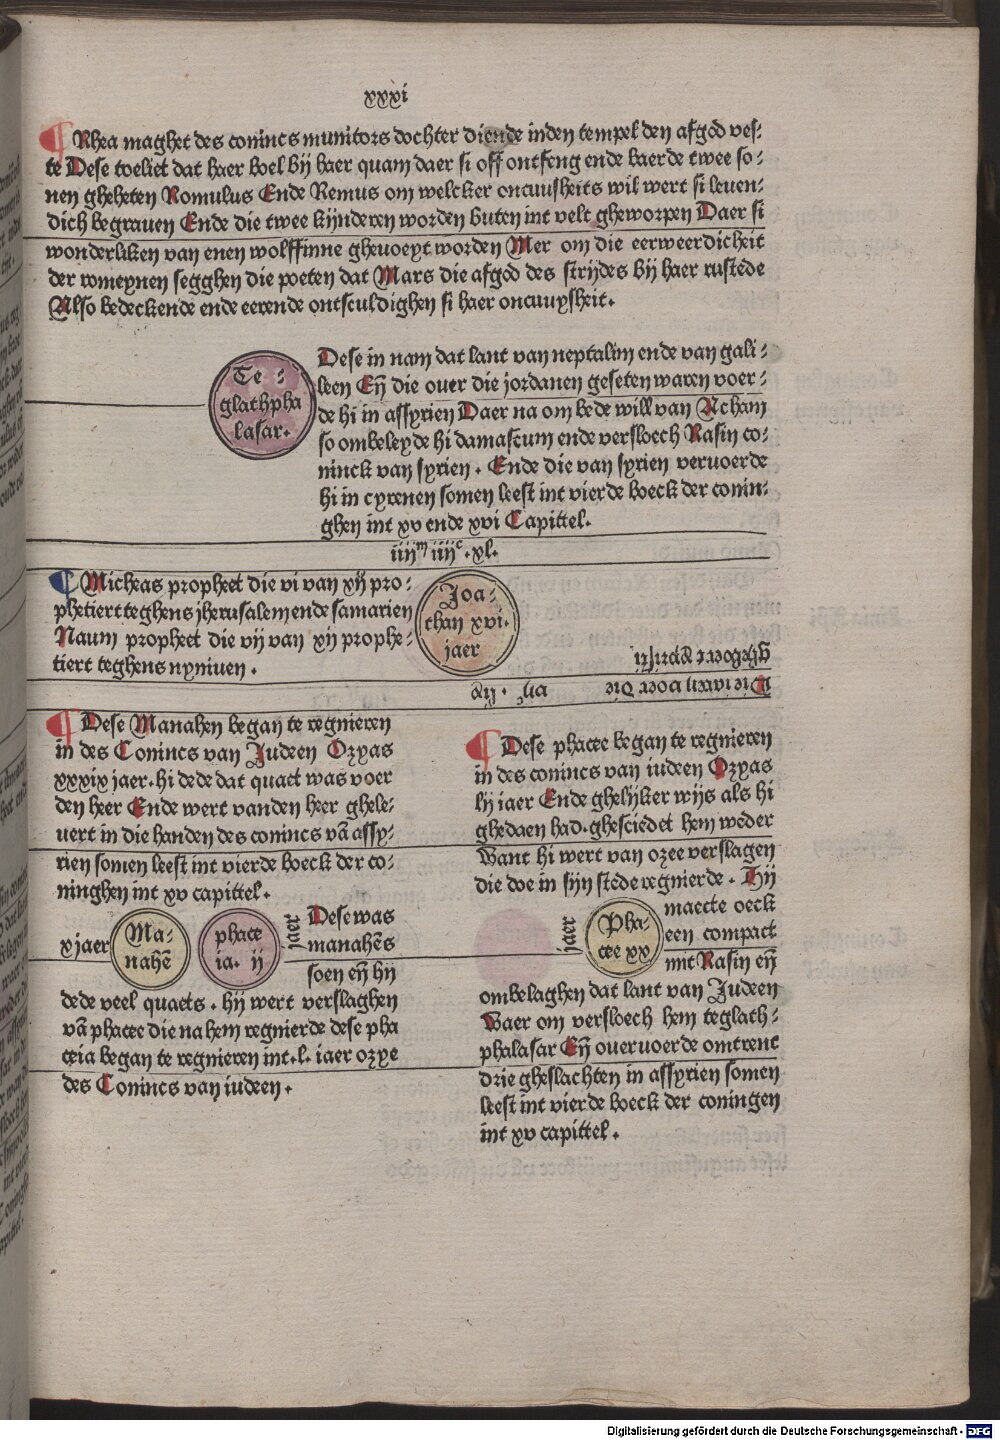 xxxi
¶ Rhea maghet des conincs munitors dochter diende inden tempel den afgod ves⸗
te Dese toeliet dat haer boel bij haer quam daer si off ontfeng ende baerde twee so⸗
nen gheheten Romulus Ende Remus om welcker oncuusheits wil wert si leuen⸗
dich begrauen Ende die twee kijnderen worden buten int velt gheworpen Daer si
wonderliken van enen wolffinne gheuoeyt worden Mer om die eerweerdicheit
der romeynen segghen die poeten dat Mars die afgod des strijdes bij haer rustede
Also bedeckende ende eerende ontsculdighen si haer oncuuysheit.
Te⸗
glathpha
lasar.
Dese in nam dat lant van neptalim ende van gali⸗
leen Eñ die ouer die jordanen geseten waren voer⸗
de hi in assyrien Daer na om bede will van Acham
so ombeleyde hi damascum ende versloech Rasin co⸗
ninck van syrien. Ende die van syrien veruoerde
hi in cyrenen somen leest int vierde boeck der conin⸗
ghen int xv ende xvi Capittel.
iiijᵐ iiijᶜ.xl.
¶ Micheas propheet die vi van xij pro⸗
phetiert teghens jherusalem ende samarien
Naum propheet die vij van xij prophe⸗
tiert teghens nyniuen.
Joa⸗
than xvi.
jaer
gheboert xpristi
Die iaren voer die
vijᶜ. lix
¶ Dese Manahen began te regnieren
in des Conincs van Judeen Ozyas
xxxix jaer. hi dede dat quaet was voer
den heer Ende wert vanden heer ghele⸗
uert in die handen des conincs vā assy⸗
rien somen leest int vierde boeck der co⸗
ninghen int xv capittel.
x jaer
Ma⸗
nahē
phace
ia. ij
jaer
Dese was
manahēs
soen eñ hij
dede veel quaets. hij wert verslaghen
vā phacee die na hem regnierde dese pha
ceia began te regnieren int.l. iaer ozye
des Conincs van iudeen.
¶ Dese phacee began te regnieren
in des conincs van iudeen Ozyas
lij iaer Ende ghelijker wijs als hi
ghedaen had. ghesciedet hem weder
Want hi wert van ozee verslagen
die doe in sijn stede regnierde. Hij
jaer
Pha⸗
cee xx
maecte oeck
een compact
mit Rasin eñ
ombelaghen dat lant van Judeen
Waer om versloech hem teglath⸗
phalasar Eñ ouervoerde omtrent
drie gheslachten in assyrien somen
leest int vierde boeck der coningen
int xv capittel.
Digitalisierung gefördert durch die Deutsche Forschungsgemeinschaft - DFG